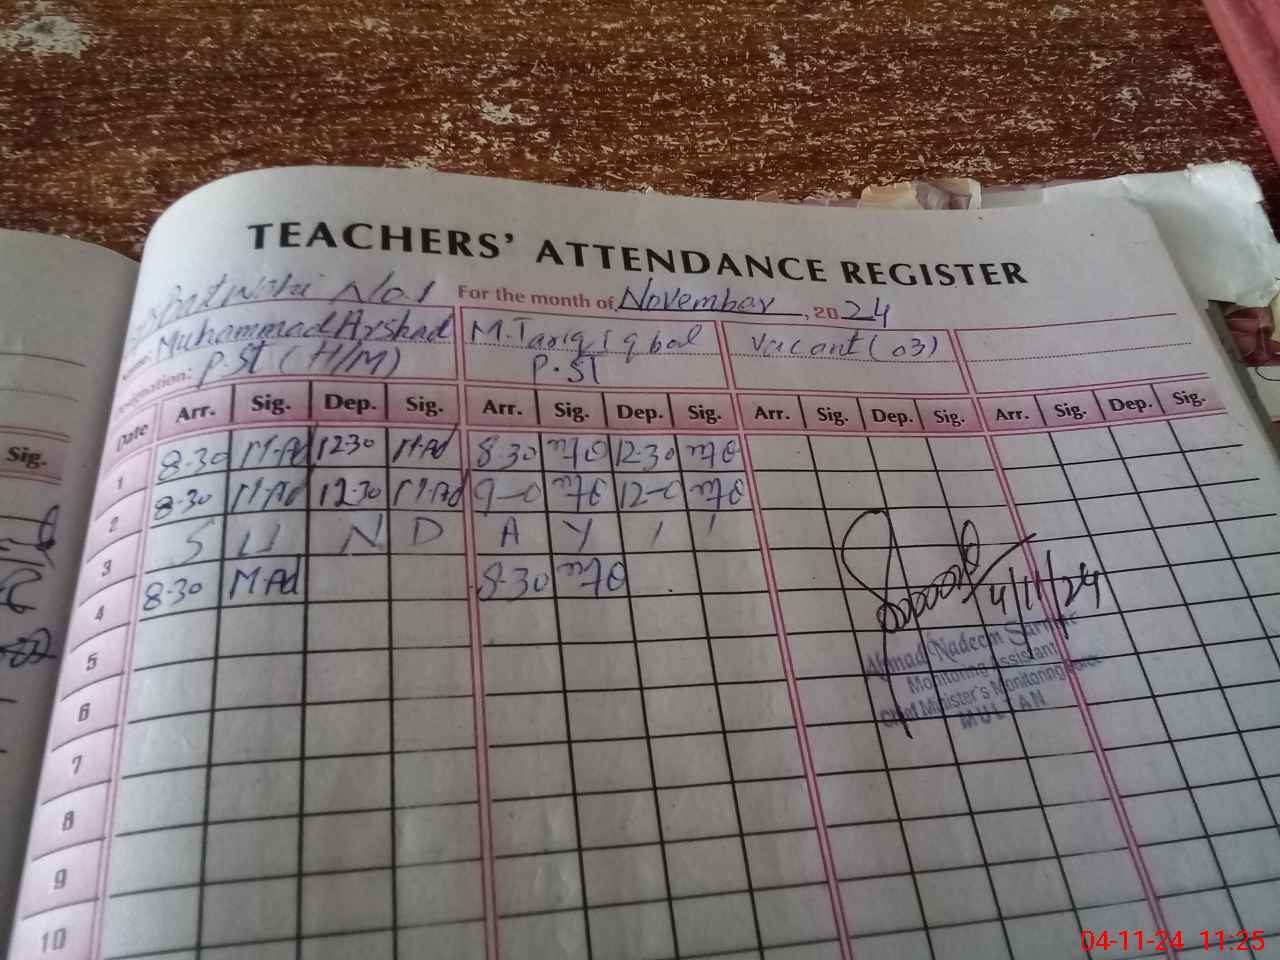 TEACHERS' ATTENDANCE REGISTER
No.1 For the month of November, 2024
Muhammad Arshad M. Tariq Iqbal Vacant (03)
Designation: P.ST (H/M) P.ST
Date Arr. Sig. Dep. Sig. Arr. Sig. Dep. Sig. Arr. Sig. Dep. Sig. Arr. Sig. Dep. Sig.
Sig.
1 8-30 M.Ad 12-30 M.Ad 8-30 12-30
2 8-30 M.Ad 12-30 M.Ad 9-0 12-0
3 S U N D A Y / /
4 8-30 M.Ad 8-30
4/11/24
5
Ahmad Nadeem
Monitoring Assistant
6
Chief Minister's Monitoring
MULTAN
7
8
9
10
04-11-24 11:25